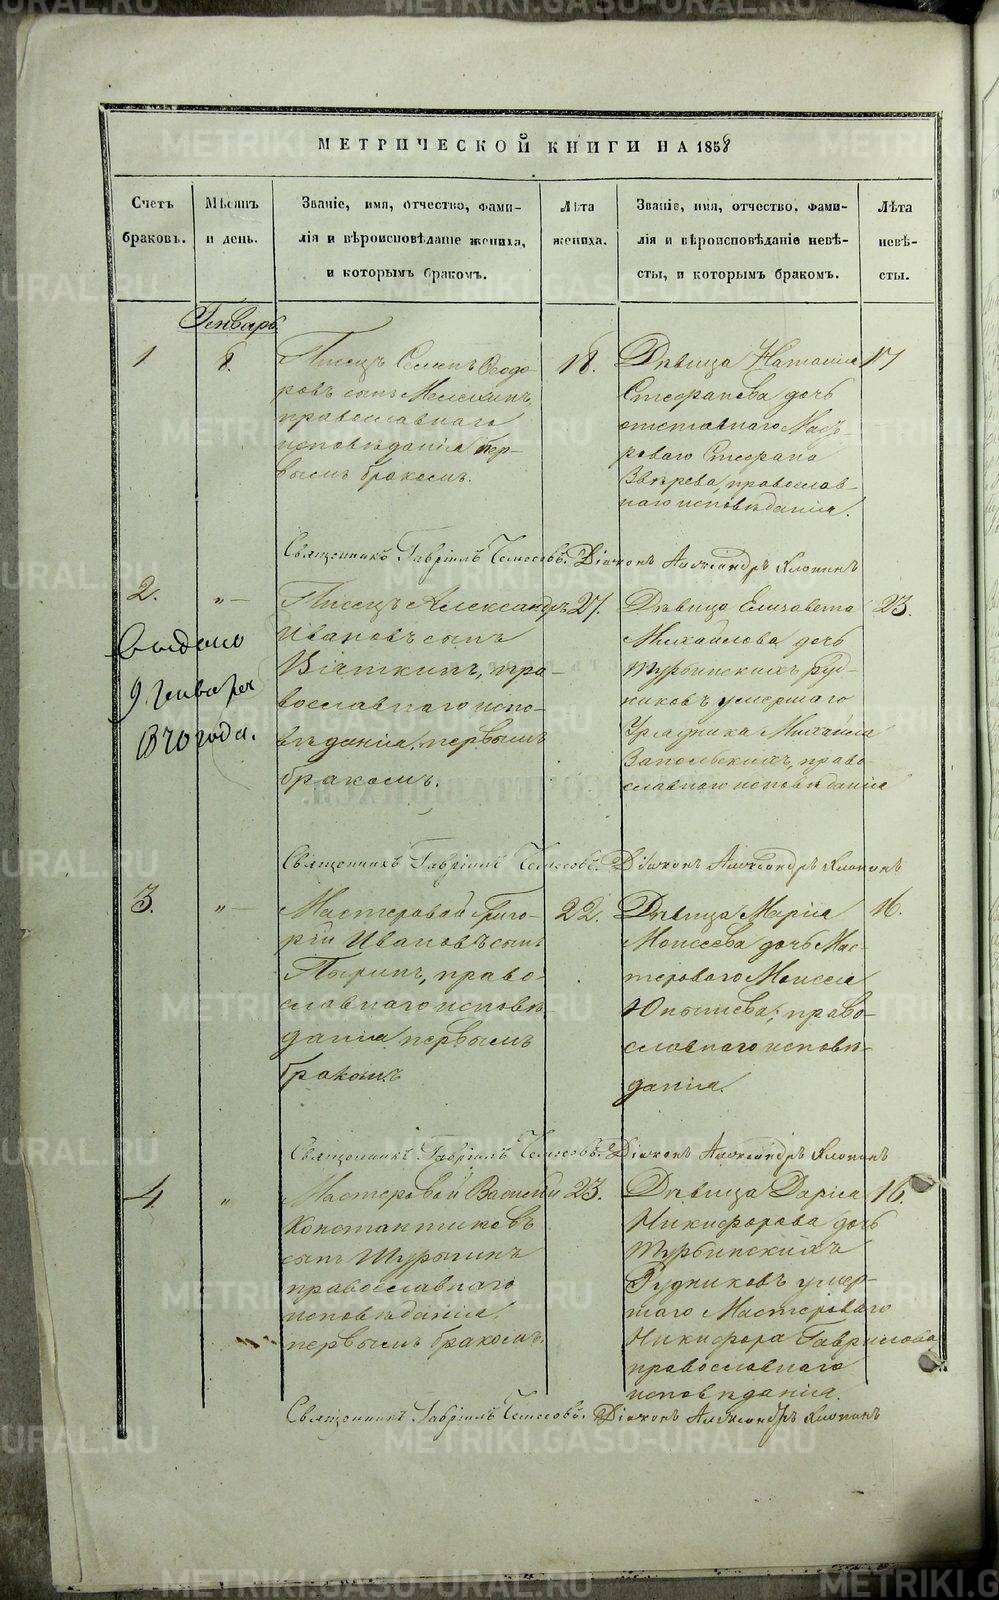 МЕТРИЧЕСКОЙ КНИГИ НА 1858
Счетъ браковъ.
Мѣсяцъ и день.
Званіе, имя, отчество, фами-
лія и вѣроисповѣданіе жениха,
и которымъ бракомъ.
Лѣта жениха.
Званіе, имя, отчество, фами-
лія и вѣроисповѣданіе невѣ-
сты, и которымъ бракомъ.
Лѣта невѣ-
сты.
Генварь
1
8.
Писецъ Семенъ Ѳеодо-
ровъ сынъ
православнаго
исповѣданія, пер-
вымъ бракомъ.
18.
Дѣвица Наталія
Стефанова дочь
отставнаго Мас
роваго Стефана
Звѣрева, православ-
наго исповѣданія.
17
Священникъ Гавріилъ Діаконъ Александръ Клопинъ
2.
„ —
Выдано
9 Генваря
1870 года.
Писецъ Александръ
Ивановъ сынъ
Вяткинъ, пра-
вославнаго испо-
вѣданія, первымъ
бракомъ.
27.
Дѣвица Елизавета
Михайлова дочь
Турьинскихъ руд-
никовъ умершаго
Урядника Михаила
Запольскихъ, право-
славнаго исповѣданія
23.
Священникъ Гавріилъ Діаконъ Александръ Клопинъ
3.
„ —
Мастеровой Григо-
рій Ивановъ сынъ
Пыринъ, право-
славнаго исповѣ-
данія, первымъ
бракомъ
22.
Дѣвица Марія
Моисеева дочь Мас-
тероваго Моисея
право-
славнаго исповѣ-
данія.
16.
Священникъ Гавріилъ Діаконъ Александръ Клопинъ
4.
„
Мастеровой Василій
Константиновъ
сынъ Шурыгинъ
православнаго
исповѣданія,
первымъ бракомъ.
23.
Дѣвица Дарія
Никифорова дочь
Турьинскихъ
Рудниковъ умер-
шаго Мастероваго
Никифора Гаврилова
православнаго
исповѣданія.
16.
Священникъ Гавріилъ Діаконъ Александръ Клопинъ
METRIKI.GASO-URAL.RU